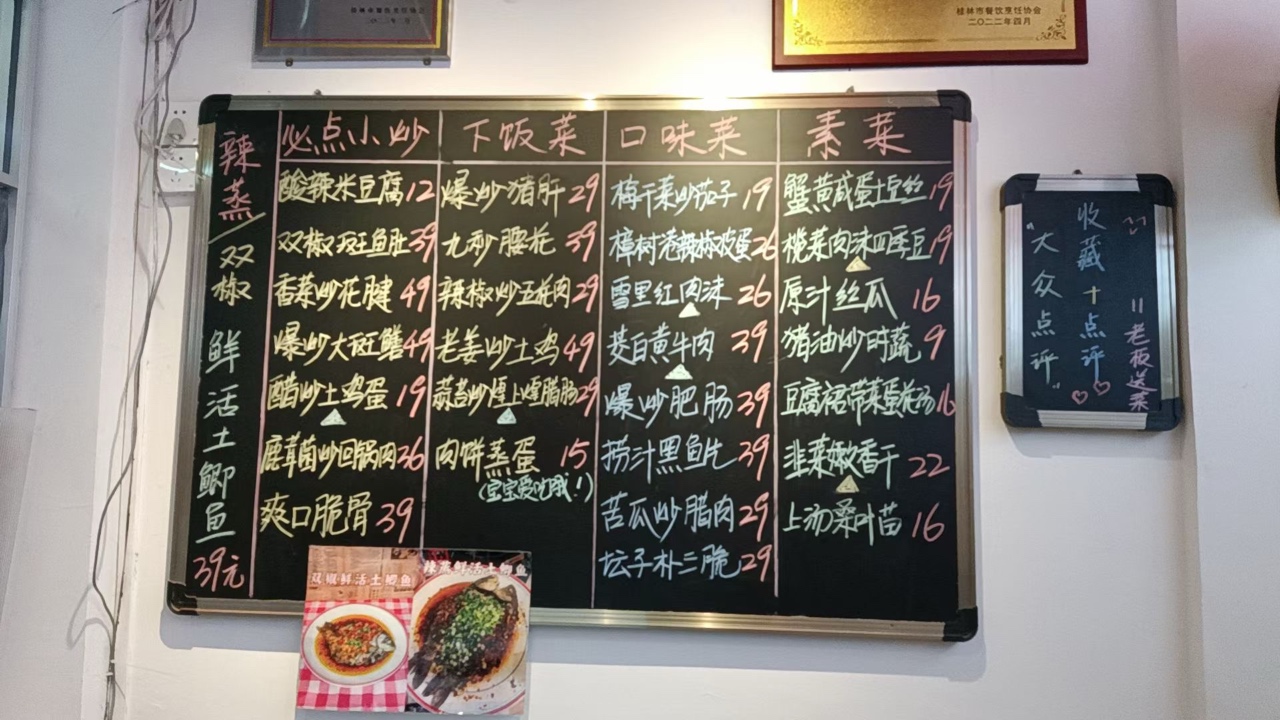 桂林市餐饮烹饪协会
二〇二二年四月
辣蒸/双椒 鲜活土鲫鱼 39元
必点小炒
酸辣米豆腐 12
双椒斑鱼肚 39
香菜炒花腱 49
爆炒大斑鳝 49
醋炒土鸡蛋 19
鹿茸菌炒回锅肉 36
爽口脆骨 39
下饭菜
爆炒猪肝 29
九秒腰花 39
辣椒炒五花肉 29
老姜炒土鸡 49
蒜苗炒炕上炕腊肠 29
肉饼蒸蛋 15
(宝宝爱吃哦!)
口味菜
梅干菜炒茄子 19
樟树港辣椒皮蛋 26
雪里红肉沫 26
茭白黄牛肉 39
爆炒肥肠 39
捞汁黑鱼片 39
苦瓜炒腊肉 29
坛子朴三脆 29
素菜
蟹黄咸蛋土豆丝 19
榄菜肉沫四季豆 19
原汁丝瓜 16
猪油炒时蔬 9
豆腐裙带菜蛋花汤 16
韭菜嫩香干 22
上汤桑叶苗 16
收藏+点评
"大众点评"
"老板送菜"
双椒鲜活土鲫鱼
辣蒸鲜活土鲫鱼